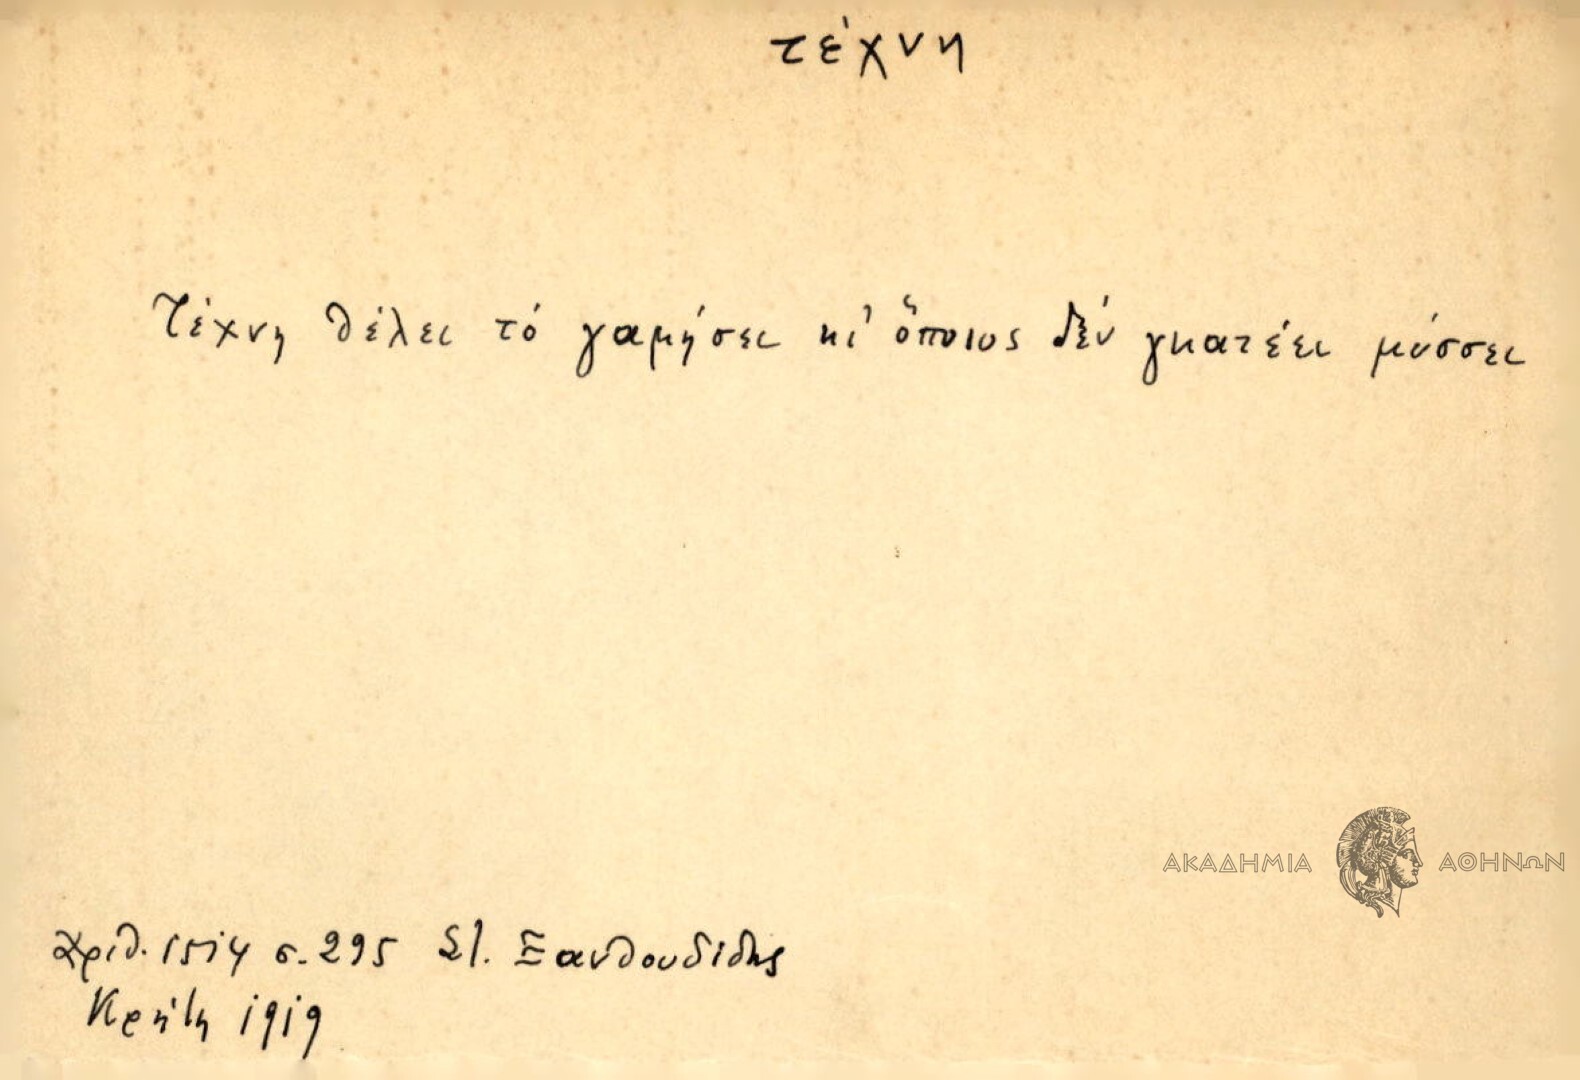 τέχνη
Τέχνη θέλει τό γαμήσει κι' ὅποιος δέν γκατέει μύσσει
ΑΚΑΔΗΜΙΑ ΑΘΗΝΩΝ
Ἀριθ. 1514 σ. 295 Στ. Ξανθουδίδης
Κρήτη 1919